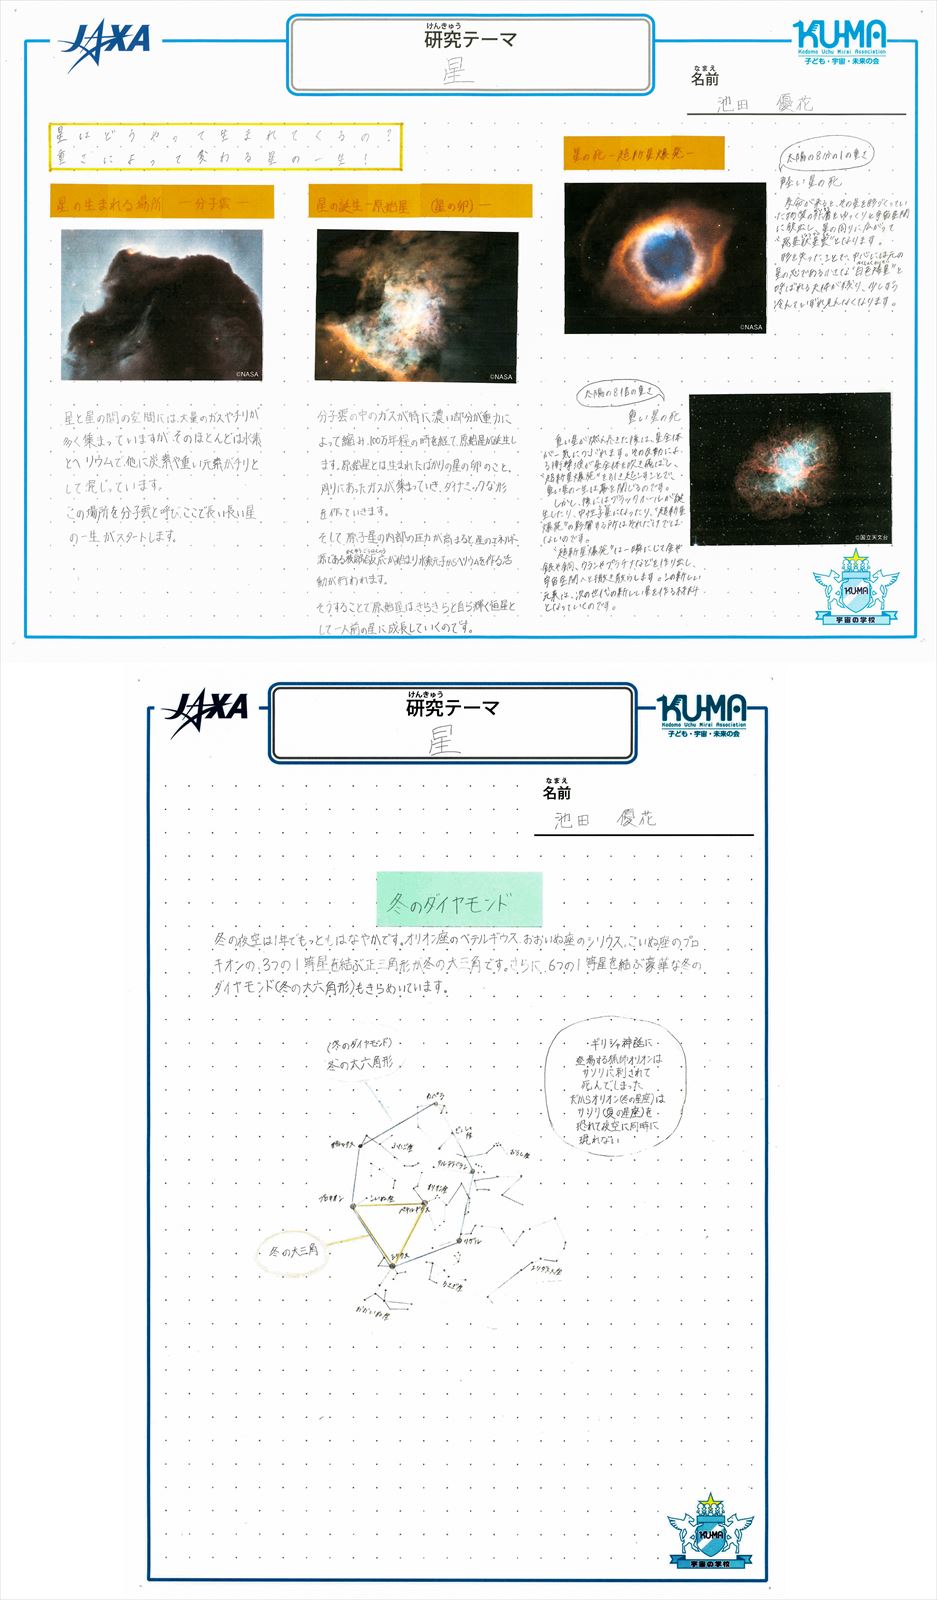 JAXA
けんきゅう
研究テーマ
星
KU-MA
Kodomo Uchu Mirai Association
子ども・宇宙・未来の会
なまえ
名前
池田 優花
星はどうやって生まれてくるの?
重さによって変わる星の一生!
星の生まれる場所 ―分子雲―
©NASA
星と星の間の空間には、大量のガスやチリが
多く集まっていますが、そのほとんどは水素
とヘリウムで、他に炭素や重い元素がチリと
して混じっています。
この場所を分子雲と呼び、ここで長い長い星
の一生がスタートします。
星の誕生―原始星 (星の卵)―
©NASA
分子雲の中のガスが特に濃い部分が重力に
よって縮み、100万年程の時を経て、原始星が誕生し
ます。原始星とは生まれたばかりの星の卵のこと。
周りにあったガスが集まっていき、ダイナミックな形
を作っていきます。
そして原子星の内部の圧力が高まると星のエネルギー
源である核融合反応が始まり水素元子からヘリウムを作る活
動が行われます。
そうすることで原始星はきらきらと自ら輝く恒星と
して一人前の星に成長していくのです。
星の死―超新星爆発―
©NASA
太陽の8分の1の重さ
軽い星の死
寿命が来ると、その星を形づくってい
た物質の
に放出し、星の周りに広がって
"惑星状星雲"となります。
星の芯である小さな"白色矮星"と
呼ばれる天体が残り、少しずつ
冷えていずれ見えなくなります。
太陽の8倍の重さ
重い星の死
重い星が燃えつきた後は、星全体
が一気につぶれます。その反動によ
る衝撃波が星全体を吹き飛ばし、
"超新星爆発"を引き起こすことで、
重い星の一生は幕を閉じるのです。
しかし、後にはブラックホールが誕
生したり、中性子星になったり、"超新星
爆発"の影響する所はそれだけでは
ないのです。
"超新星爆発"は一瞬にして金や
銀や銅、ウランやプラチナなどを作り出し、
宇宙空間へと撒き散らします。この新しい
元素は、次の世代の新しい星を作る材料
となっていくのです。
©国立天文台
KUMA
宇宙の学校
JAXA
けんきゅう
研究テーマ
星
KU-MA
Kodomo Uchu Mirai Association
子ども・宇宙・未来の会
なまえ
名前
池田 優花
冬のダイヤモンド
冬の夜空は1年でもっともはなやかです。オリオン座のベテルギウス、おおいぬ座のシリウス、こいぬ座のプロ
キオンの、3つの1等星を結ぶ正三角形が冬の大三角です。さらに、6つの1等星を結ぶ豪華な冬の
ダイヤモンド(冬の大六角形)もきらめいています。
(冬のダイヤモンド)
冬の大六角形
ギリシャ神話に
登場する狩師オリオンは
サソリに刺されて
死んでしまった
だからオリオン(冬の星座)は
サソリ(夏の星座)を
恐れて夜空に同時に
現れない
カペラ
ぎょしゃ座
ポルックス
ふたご座
おうし座
アルデバラン
プロキオン
こいぬ座
オリオン座
ベテルギウス
冬の大三角
シリウス
リゲル
うさぎ座
エリダヌス座
おおいぬ座
KUMA
宇宙の学校